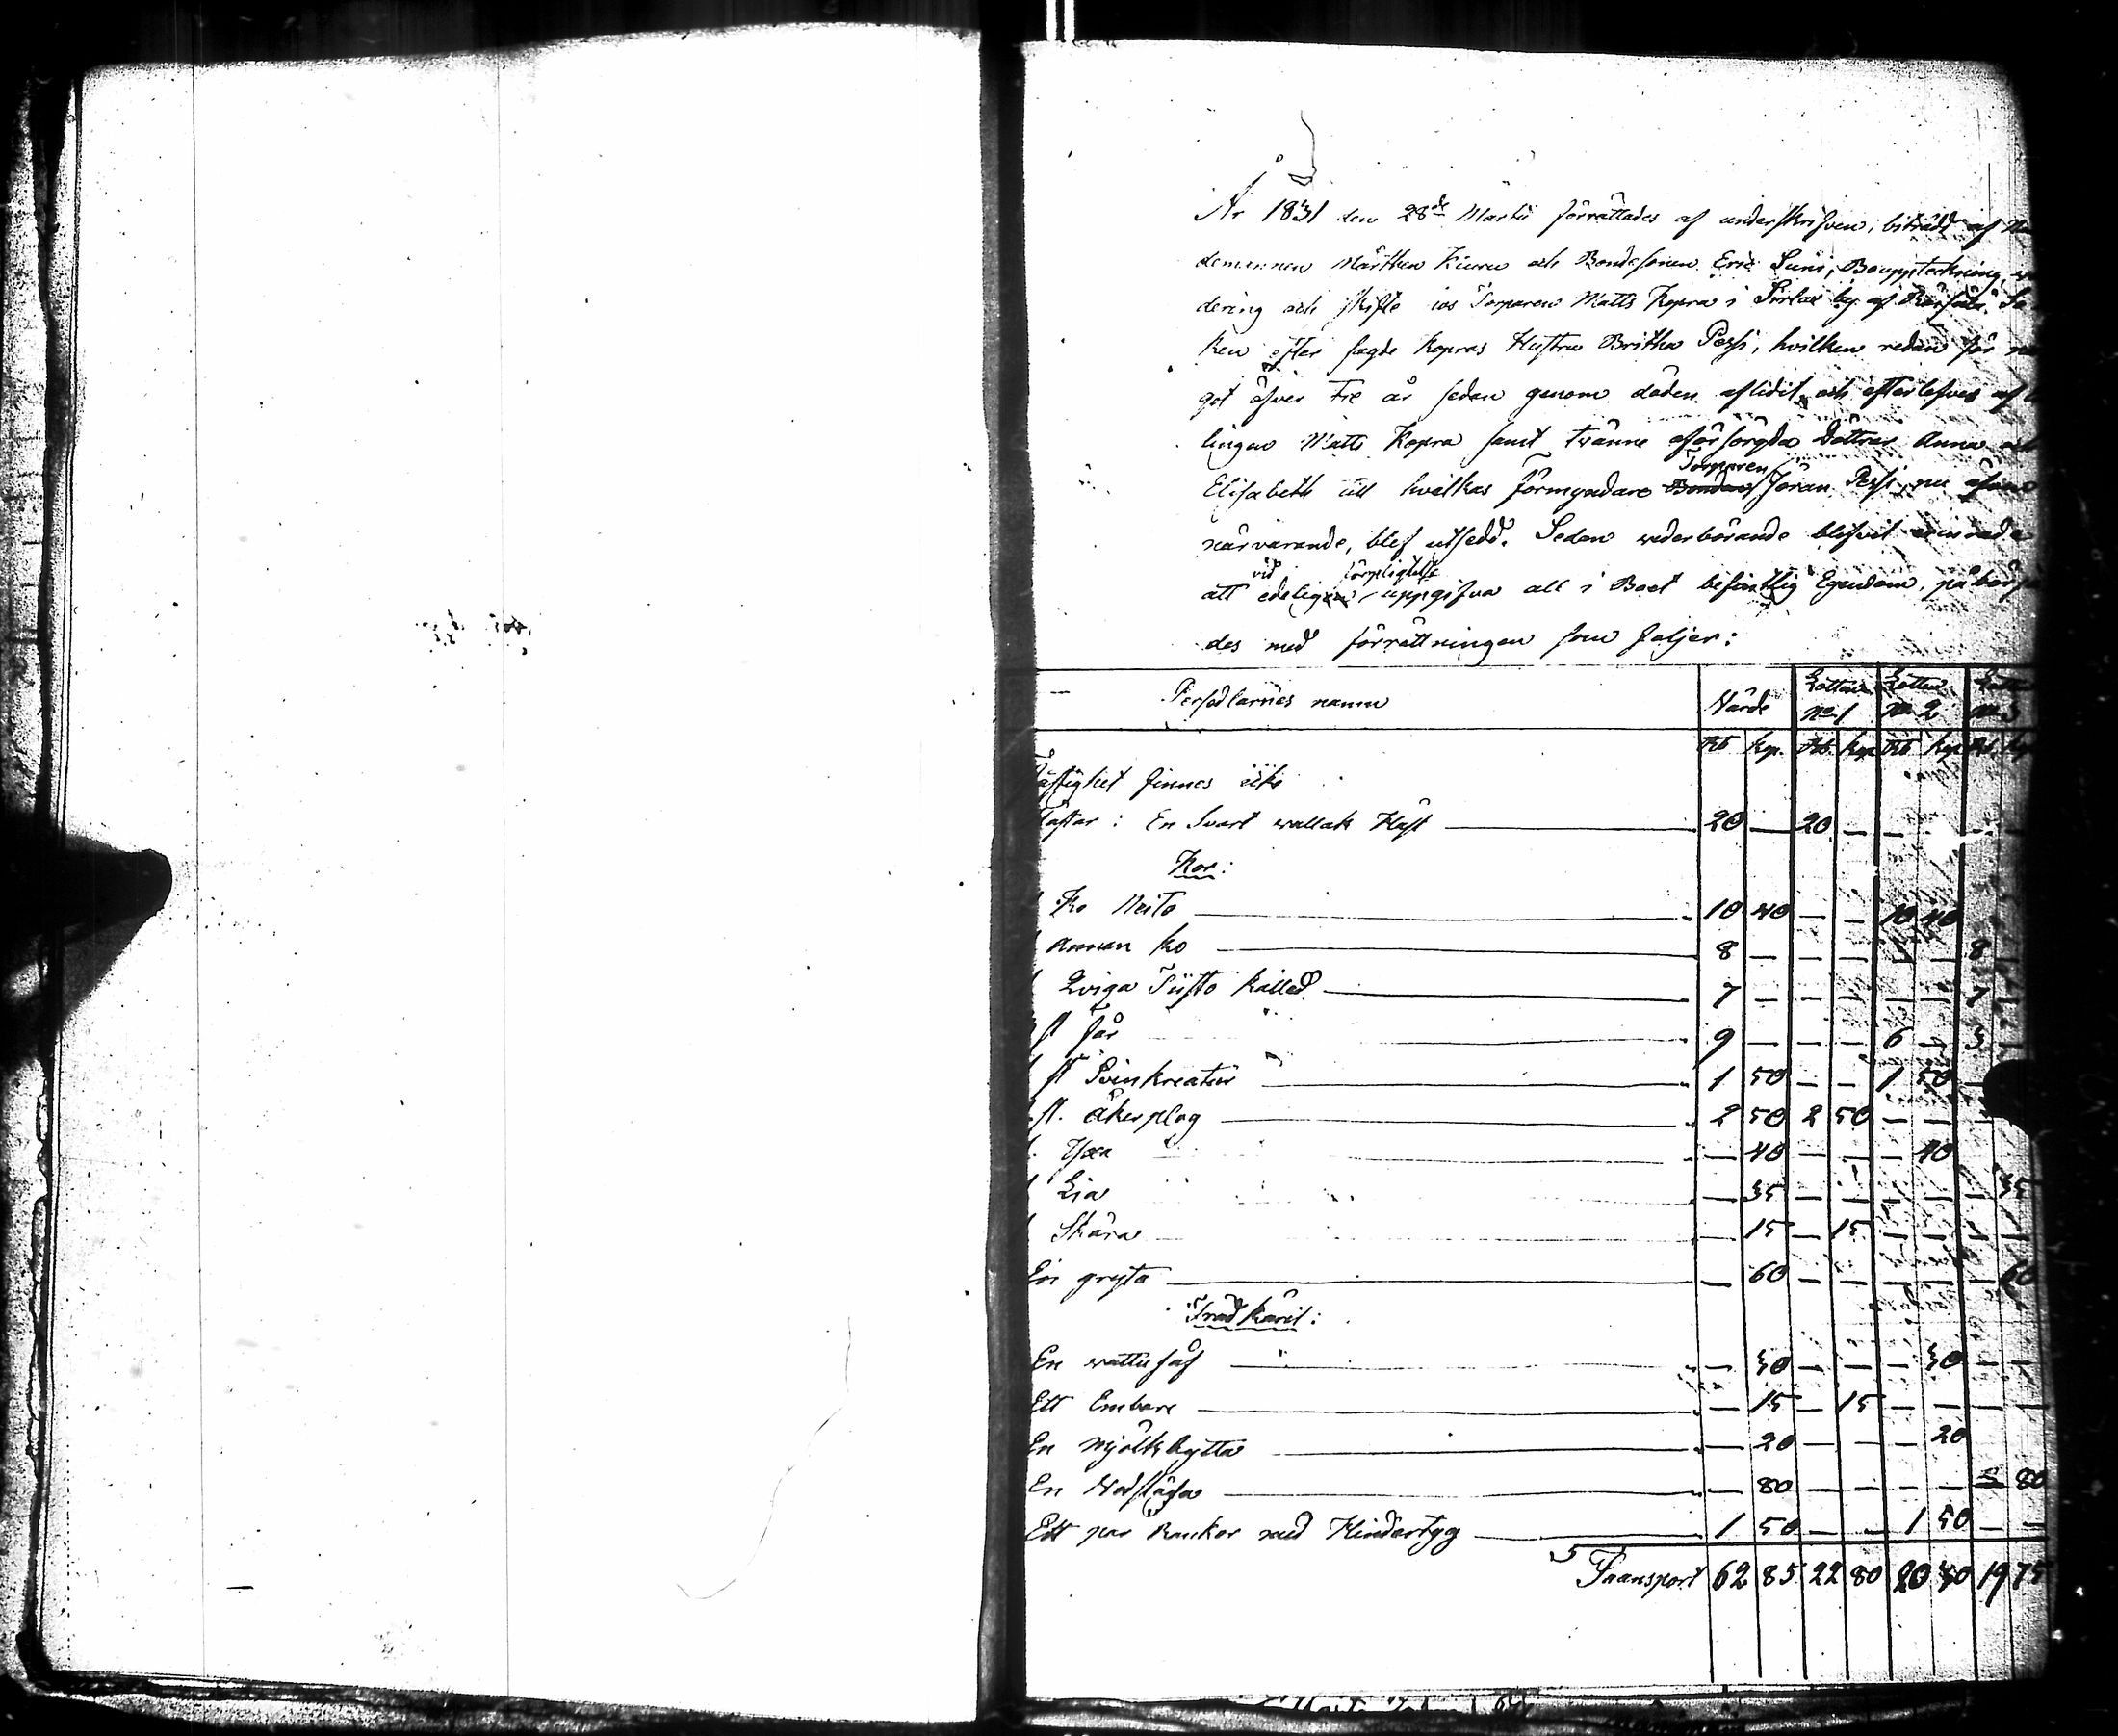 År 1831 den 28de Martii förrättades af underskrifven, biträdd af
demannen Mårthen Kiuru och Bondesonen Eric Suni, Bouppteckning
dering och skifte hos Torparen Matts Kopra i Sirlax by af
ken efter sagde Kopras Hustru Britha Pessi, hvilken redan för
got öfver Tre år sedan genom döden aflidit, och efterlefves af
lingen Matts Kopra samt tvänne oförsörgda Döttrar Anna och
Elisabeth till hvilkas Förmyndare Bonden Torparen Göran Pessi, nu äfven
närvarande, blef utsedd. Sedan vederbörande blifvit
att vid edelig förpligtelse uppgifva all i Boet befintlig Egendom, påbörja
des med förrättningen som följer:
Persedlarnes namn Värde Lotten No 1 Lotten No 2 Lotten No 3
Rb kop. Rb. kop Rb kop Rb kop
Fastighet finnes icke
Hästar: En Svart wallak Häst 20 — 20 — — —
Kor:
Ko Neito 10 40 — — 10 40
1 annan ko 8 — — — — — 8
1 Qviga Tiisto kallad 7 — — — — — 7
st Får 9 — — — 6 — 3
1 st Svinkreatur 1 50 — — 1 50 —
st. Åkerplog 2 50 2 50 — — —
1 Yxa — 40 — — — 40
1 Lia — 35 — — — — — 35
1 Skära — 15 — 15 — — — —
En gryta — 60 — — — — — 60
Trädkäril:
En wattusås — 30 — — — 30 — —
Ett Embare — 15 — 15 — — — —
En mjölkbytta — 20 — — — 20
En Wedsläda — 80 — — — — — 80
Ett par Bankor med Hindertyg 1 50 — — 1 50 — —
Transport 62 85 22 80 20 30 19 75